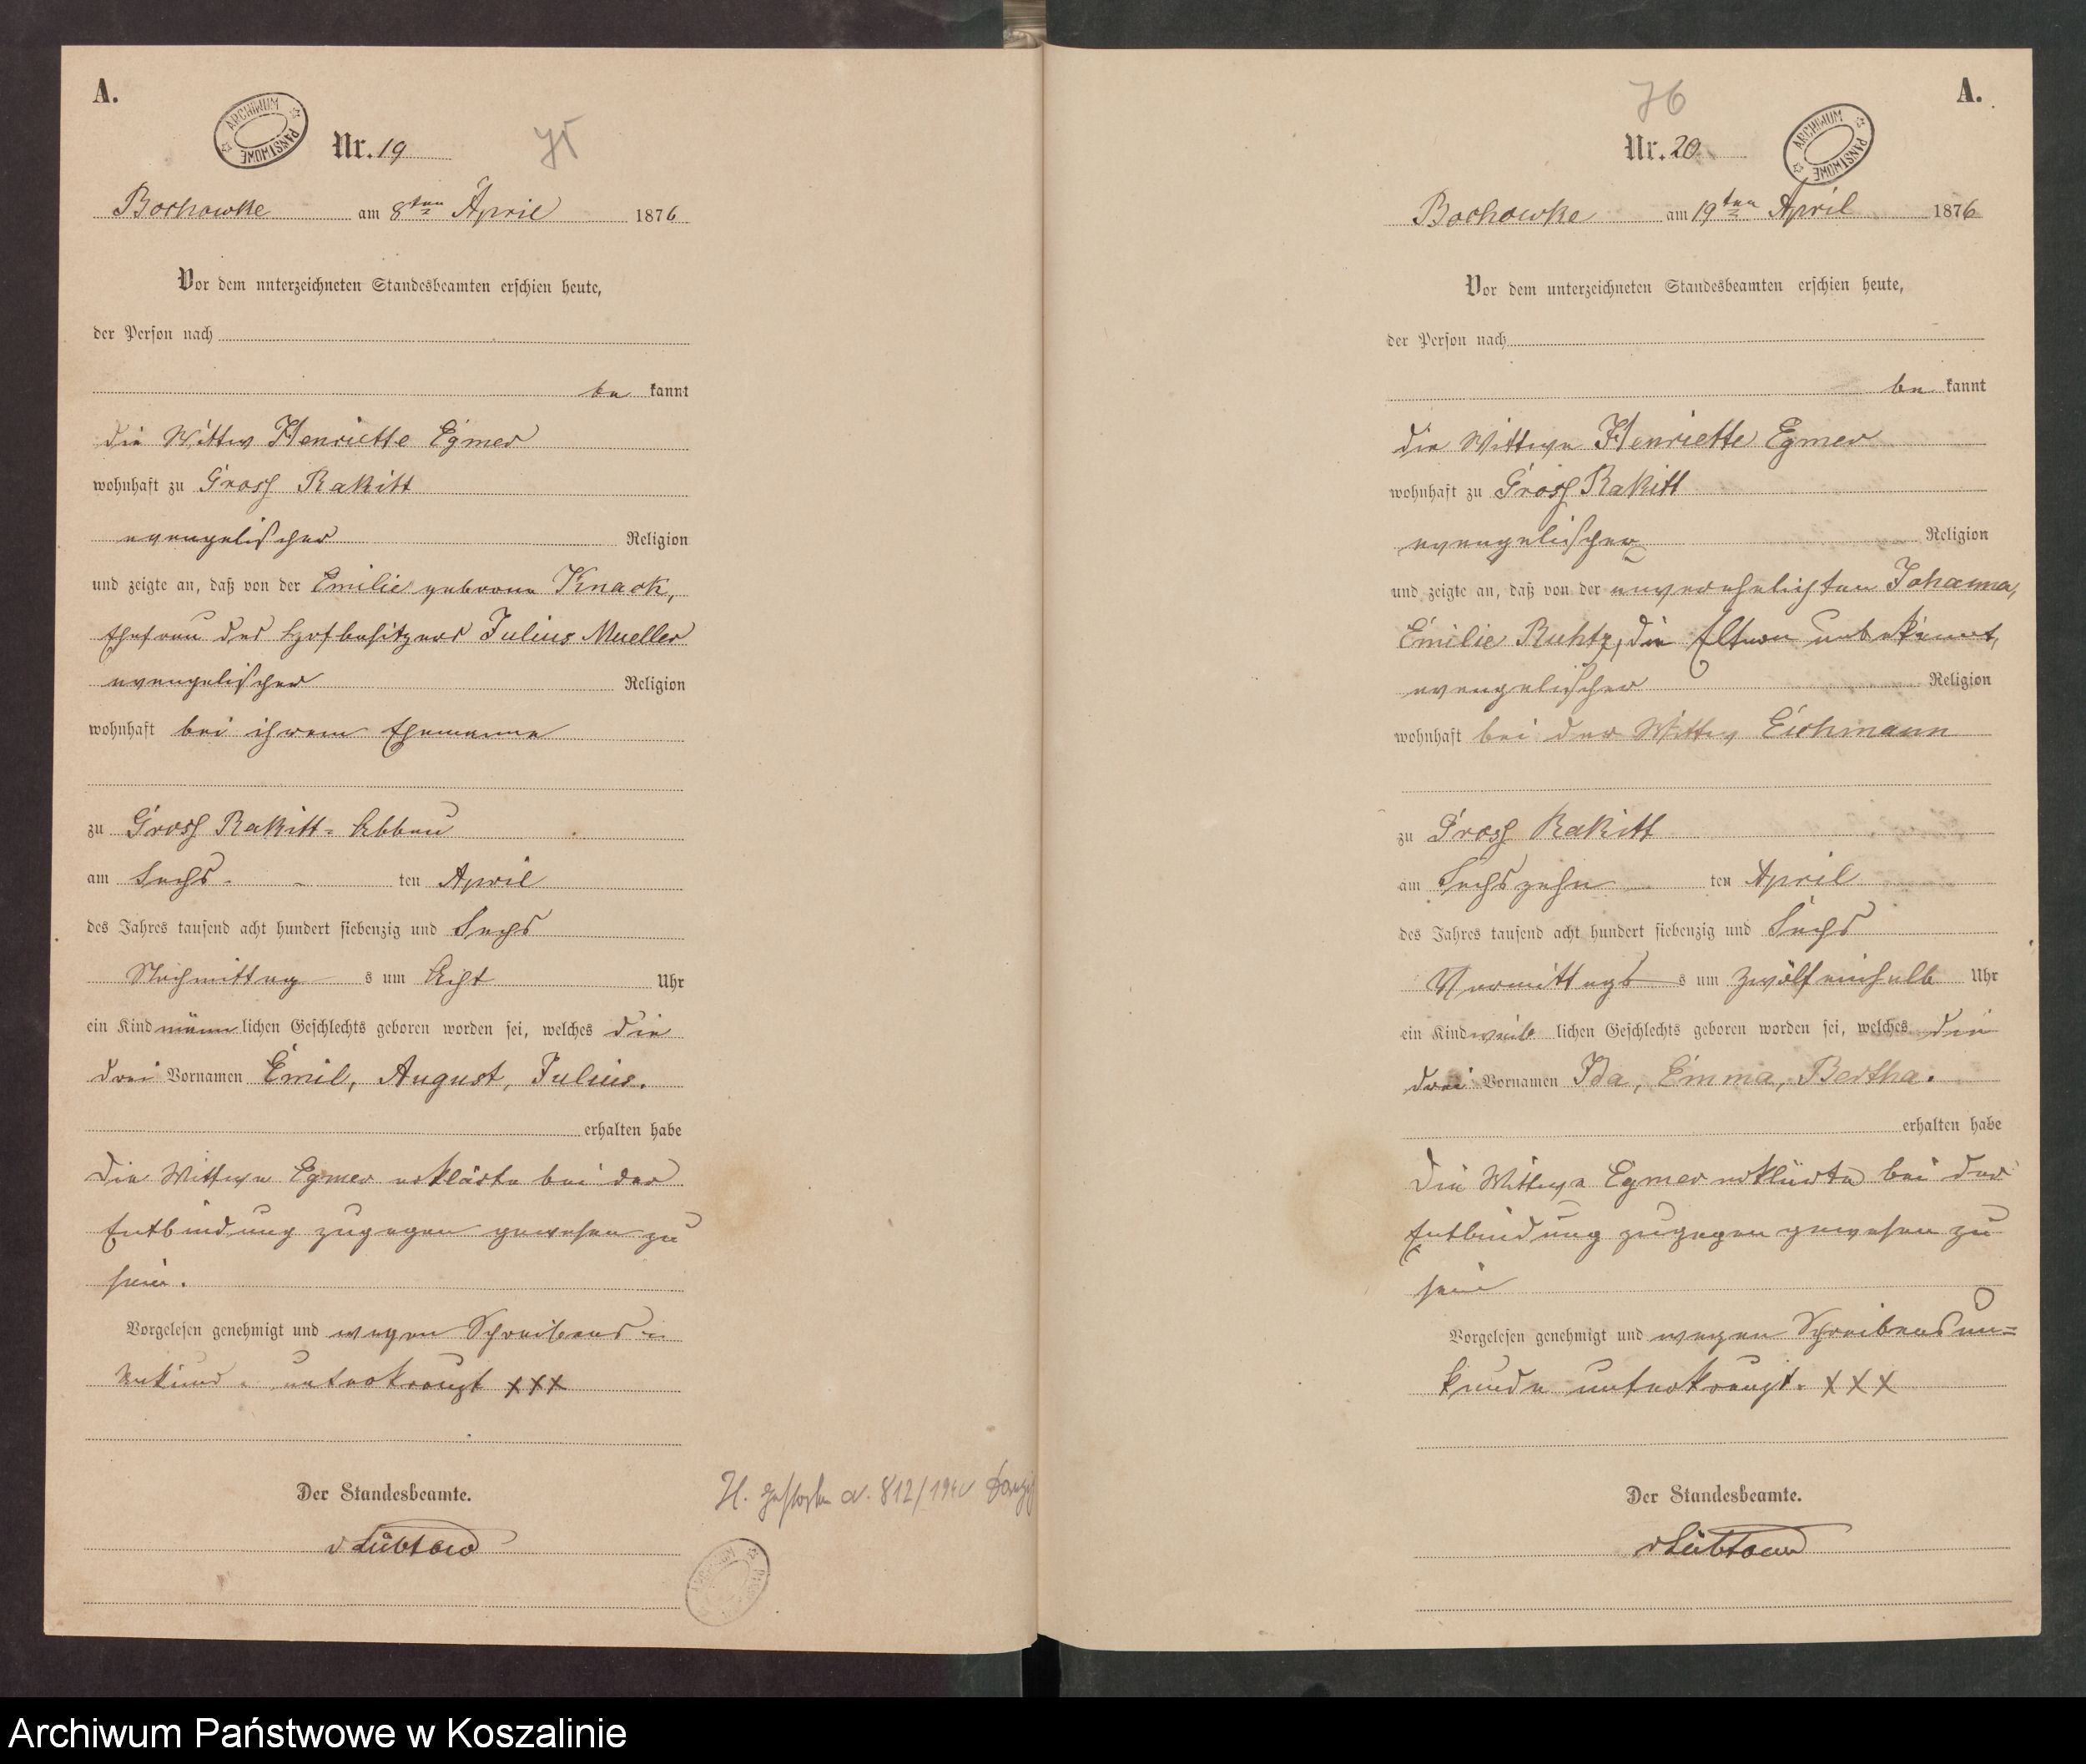 A.
ARCHIWUM PAŃSTWOWE
Nr. 19
75
Bochowke am 8ten April 1876
Vor dem unterzeichneten Standesbeamten erschien heute,
der Person nach
be kannt
die Wittwe Henriette Egmer
wohnhaft zu Gross Rakitt
evangelischer Religion
und zeigte an, daß von der Emilie geborne Knack,
Ehefrau des Hofbesitzers Julius Mueller
evangelischer Religion
wohnhaft bei ihrem Ehemanne
zu Gross Rakitt-Abbau
am Sechs ten April
des Jahres tausend acht hundert siebenzig und Sechs
Nachmittag s um Acht Uhr
ein Kind männ lichen Geschlechts geboren worden sei, welches die
drei Vornamen Emil, August, Julius.
erhalten habe
Die Wittwe Egmer erklärte bei der
Entbindung zugegen gewesen zu
sein.
Vorgelesen genehmigt und wegen Schreibens
unterkreuzt XXX
Der Standesbeamte.
v Lübtow
H. gestorben 812/1940 Danzig
A.
76
Nr. 20
ARCHIWUM PAŃSTWOWE
Bochowke am 19ten April 1876
Vor dem unterzeichneten Standesbeamten erschien heute,
der Person nach
be kannt
die Wittwe Henriette Egmer
wohnhaft zu Gross Rakitt
evangelischer Religion
und zeigte an, daß von der unverehelichten Johanna,
Emilie Ruhtz, die Eltern unbekannt,
evangelischer Religion
wohnhaft bei der Wittwe Eichmann
zu Gross Rakitt
am Sechszehn ten April
des Jahres tausend acht hundert siebenzig und Sechs
Vormittags s um zwölf einhalb Uhr
ein Kind weib lichen Geschlechts geboren worden sei, welches die
drei Vornamen Ida, Emma, Bertha.
erhalten habe
Die Wittwe Egmer erklärte bei der
Entbindung zugegen gewesen zu
sein
Vorgelesen genehmigt und wegen Schreibensun=
kunde unterkreuzt. XXX
Der Standesbeamte.
v Lübtow
Archiwum Państwowe w Koszalinie